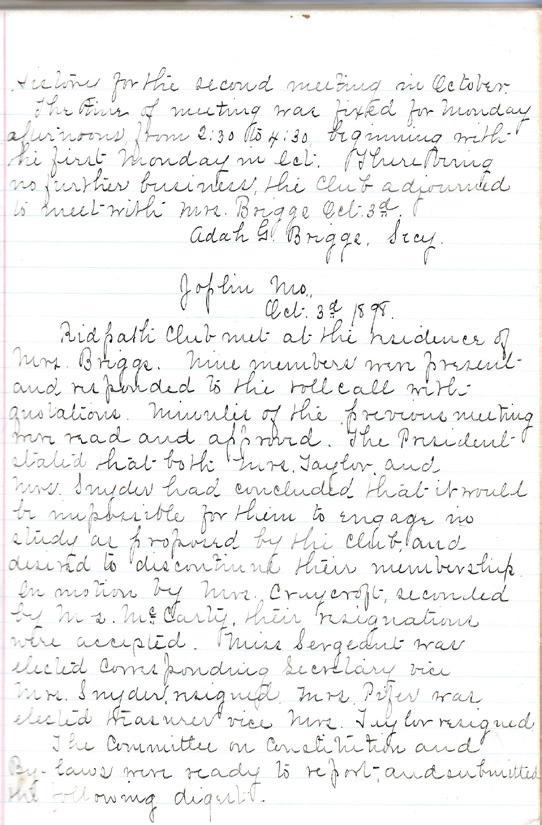 for the second meeting in October.
The time of meeting was fixed for Monday
afternoons from 2:30 to 4:30, beginning with
the first Monday in Oct. There being
no further business, the Club adjourned
to meet with Mrs. Briggs Oct. 3d.
Adah G. Briggs, Secy.
Joplin Mo.,
Oct. 3d 1898.
Ridpath Club met at the residence of
Mrs. Briggs. Nine members were present
and responded to the roll call with
quotations. Minutes of the previous meeting
were read and approved. The President
stated that both Mrs. Taylor, and
Mrs. Snyder had concluded that it would
be impossible for them to engage in
study as proposed by the Club, and
desired to discontinue their membership.
On motion by Mrs. Craycroft, seconded
by Mrs. McCarty, their resignations
were accepted. Miss Sergeant was
elected Corresponding Secretary vice
Mrs. Snyder, resigned. Mrs. Pifer was
elected Treasurer vice Mrs. Taylor resigned
The Committee on Constitution and
By-laws were ready to report, and submitted
the following digest.